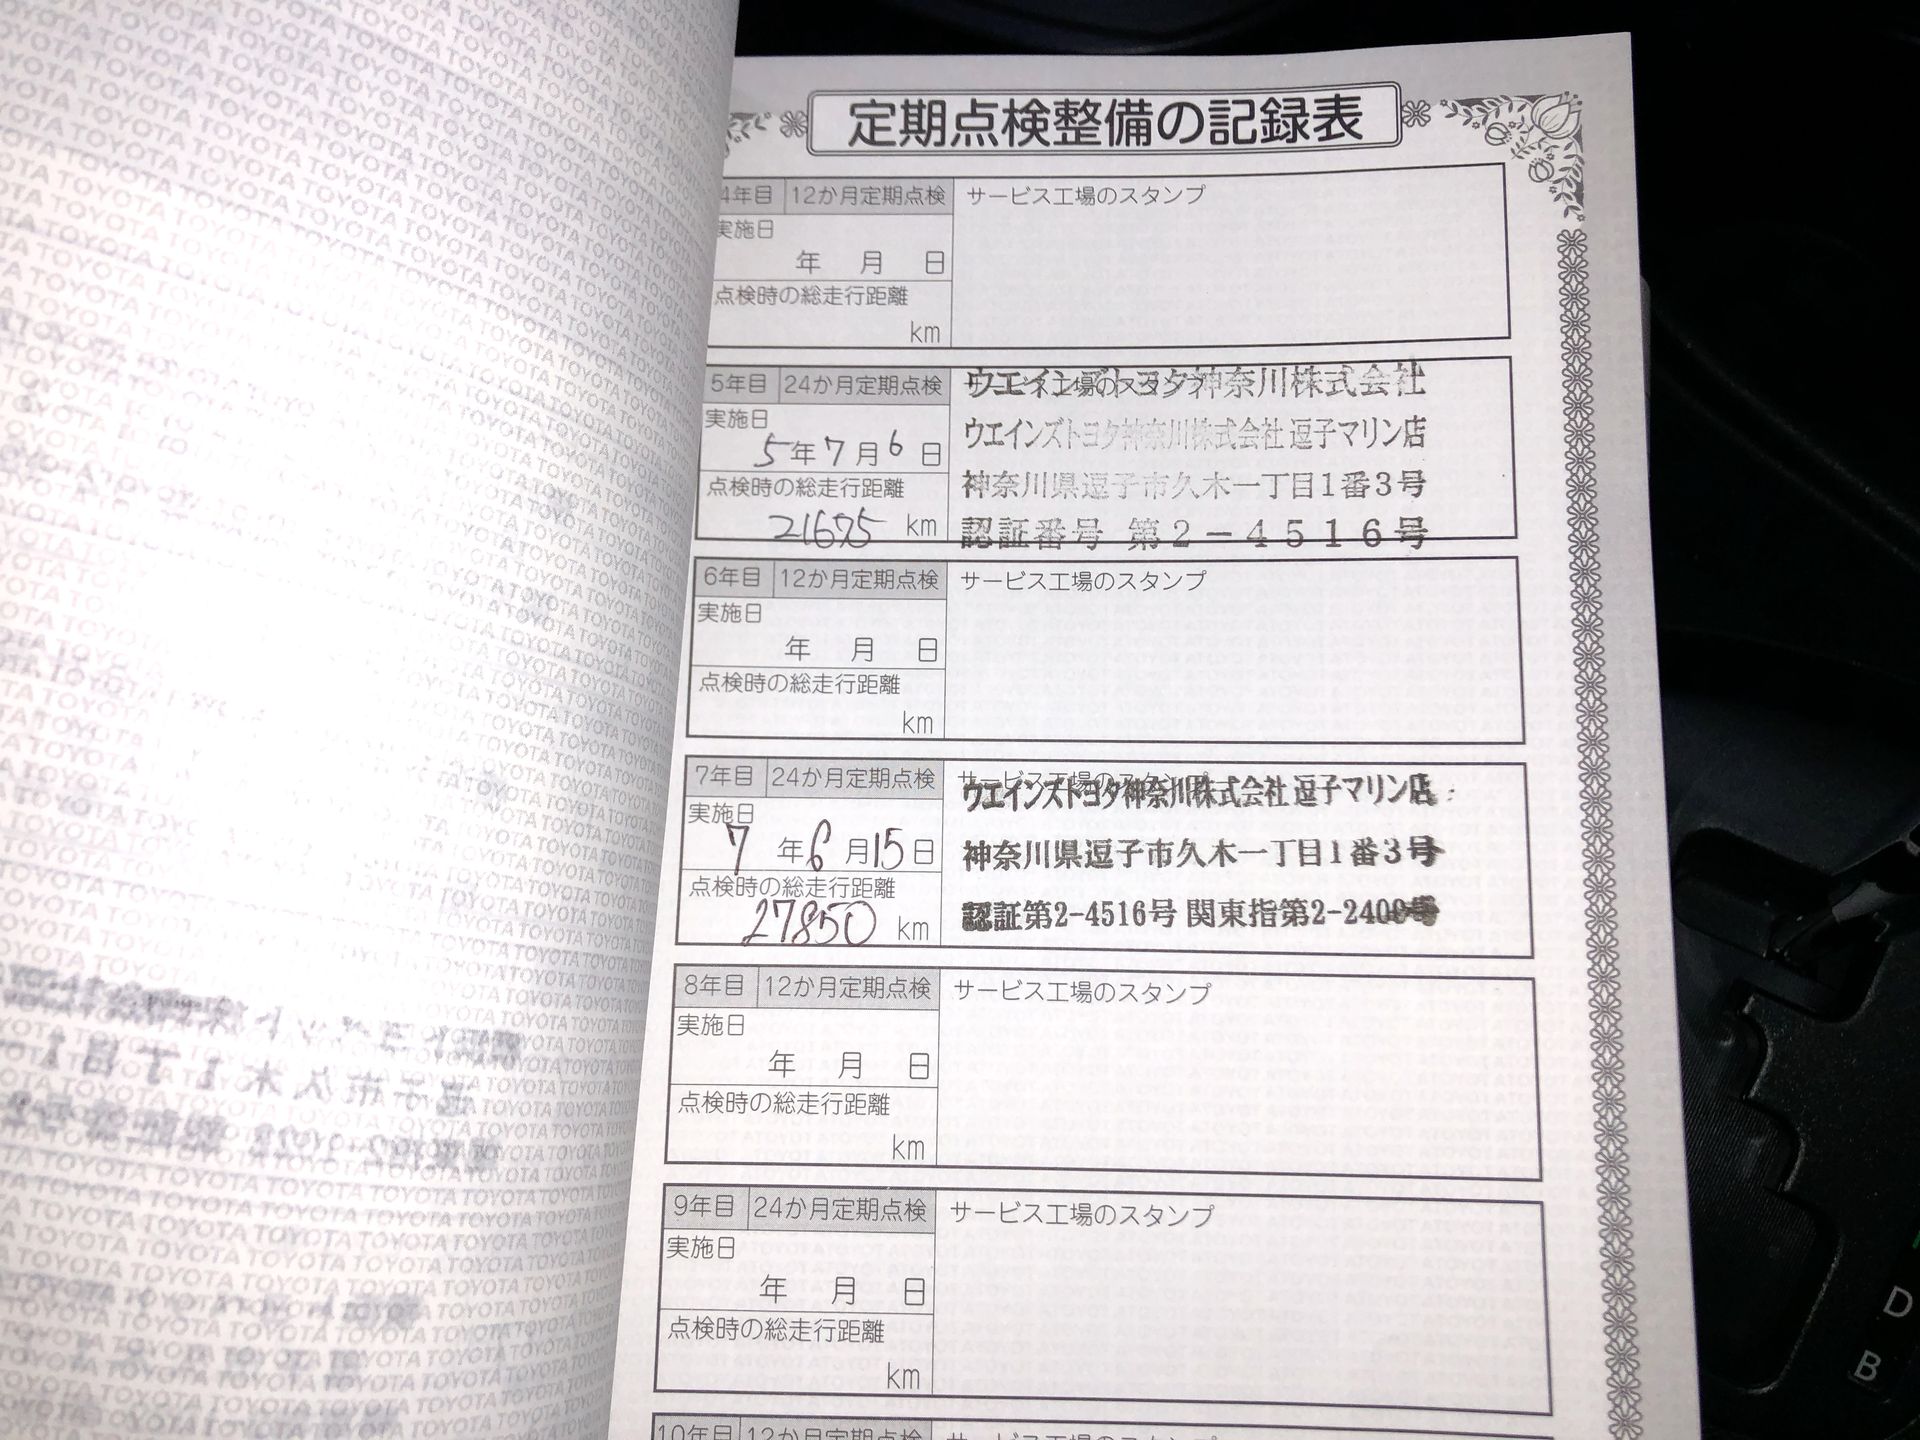 定期点検整備の記録表
4年目 12か月定期点検 サービス工場のスタンプ
実施日
年 月 日
点検時の総走行距離
km
5年目 24か月定期点検 サービス工場のスタンプ
ウエインズトヨタ神奈川株式会社
実施日
ウエインズトヨタ神奈川株式会社 逗子マリン店
5年7月6日
点検時の総走行距離
神奈川県逗子市久木一丁目1番3号
21675 km
認証番号 第2-4516号
6年目 12か月定期点検 サービス工場のスタンプ
実施日
年 月 日
点検時の総走行距離
km
7年目 24か月定期点検 サービス工場のスタンプ
ウエインズトヨタ神奈川株式会社 逗子マリン店
実施日
7年6月15日
神奈川県逗子市久木一丁目1番3号
点検時の総走行距離
27850 km
認証第2-4516号 関東指第2-2400号
8年目 12か月定期点検 サービス工場のスタンプ
実施日
年 月 日
点検時の総走行距離
km
9年目 24か月定期点検 サービス工場のスタンプ
実施日
年 月 日
点検時の総走行距離
km
10年目 12か月定期点検 サービス工場のスタンプ
TOYOTA
D
B